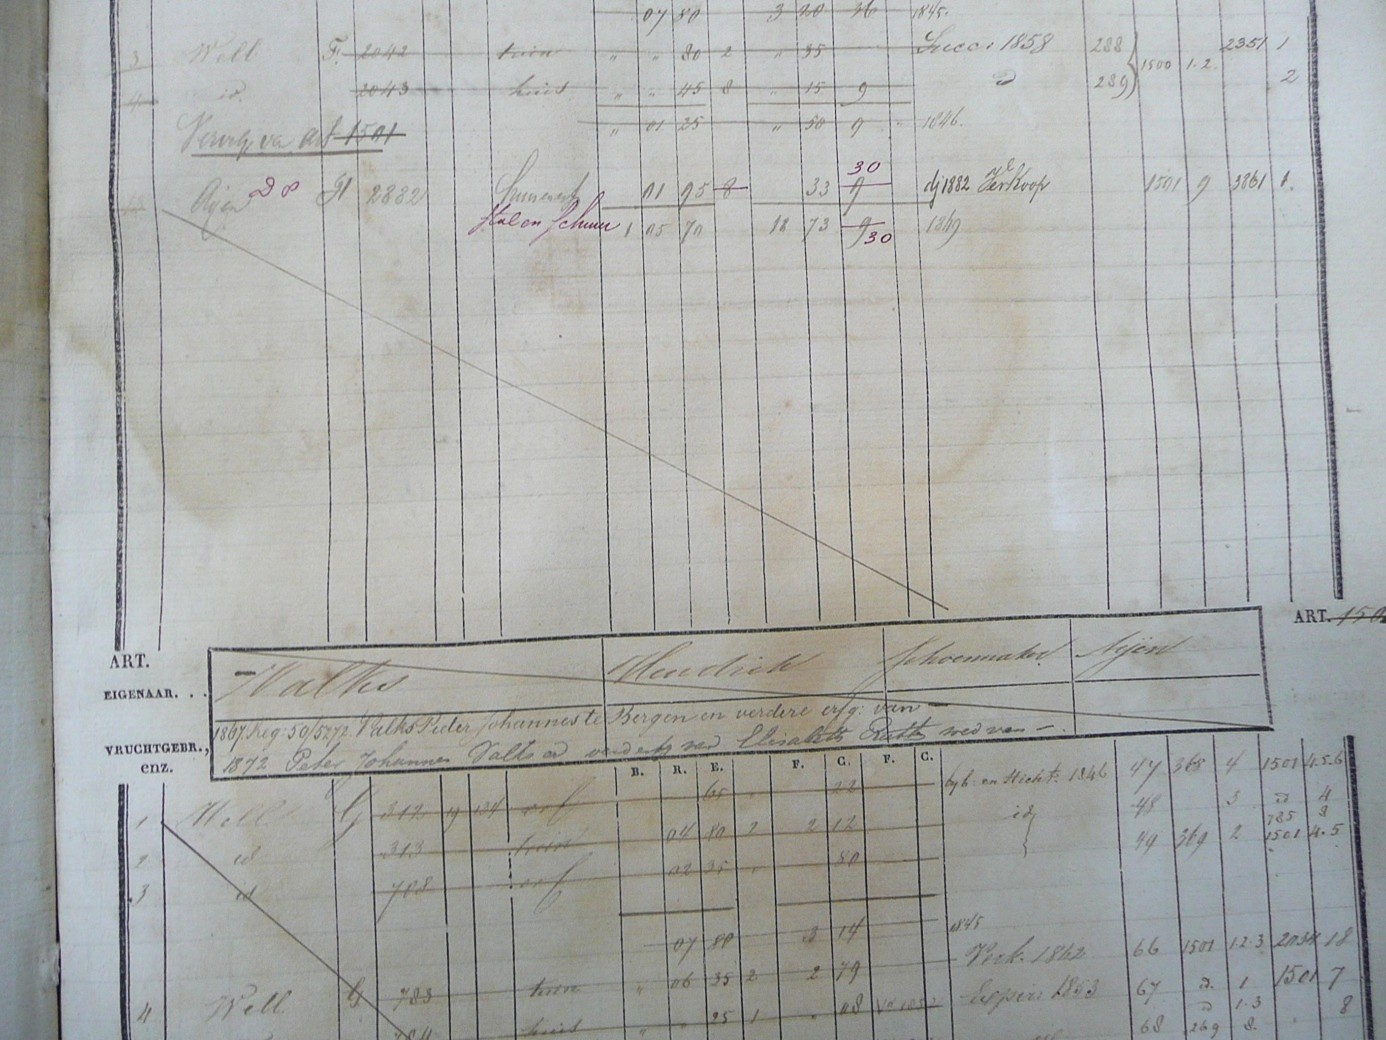 07 80 3 20 36 1845.
3 Well F. 2042 tuin " " 80 2 " 35 Succ: 1858 288 1500 1.2. 2351 1
4 id. 2043 huis " " 45 8 " 15 9 d 289 2
" 01 25 " 50 9 1846.
art 1501
30
Ajen 2882 01 95 8 33 9 dj 1882 Verkoop 1501 9 3861 1.
Stal en Schuur 1 05 70 18 73 9 30 1869
ART. ART. 150
EIGENAAR. . . Valks Hendrick Schoenmaker Ajen
1867. Reg 50/5272 Valks Pieter Johannes te Bergen en verdere erfg: van
VRUCHTGEBR., enz. 1872 Peter Johannes Valks en verd erfg van Elisabeth Rutt wed van
B. R. E. F. C. F. C.
1 Well G 312 19 134 erf 65 22 1846 47 368 4 1501 4.5.6
2 id 313 huis 04 80 2 2 12 id 48 3 d 4
785 8
3 id 708 erf 02 35 80 49 369 2 1501 4.5
07 80 3 14 1845
Verk. 1862 66 1501 1 2 3 2034 18
4 Well G 783 tuin " 06 35 2 2 79 1853 67 d. 1 1501 7
784 huis " " 25 1 " 08 68 269 8. 8